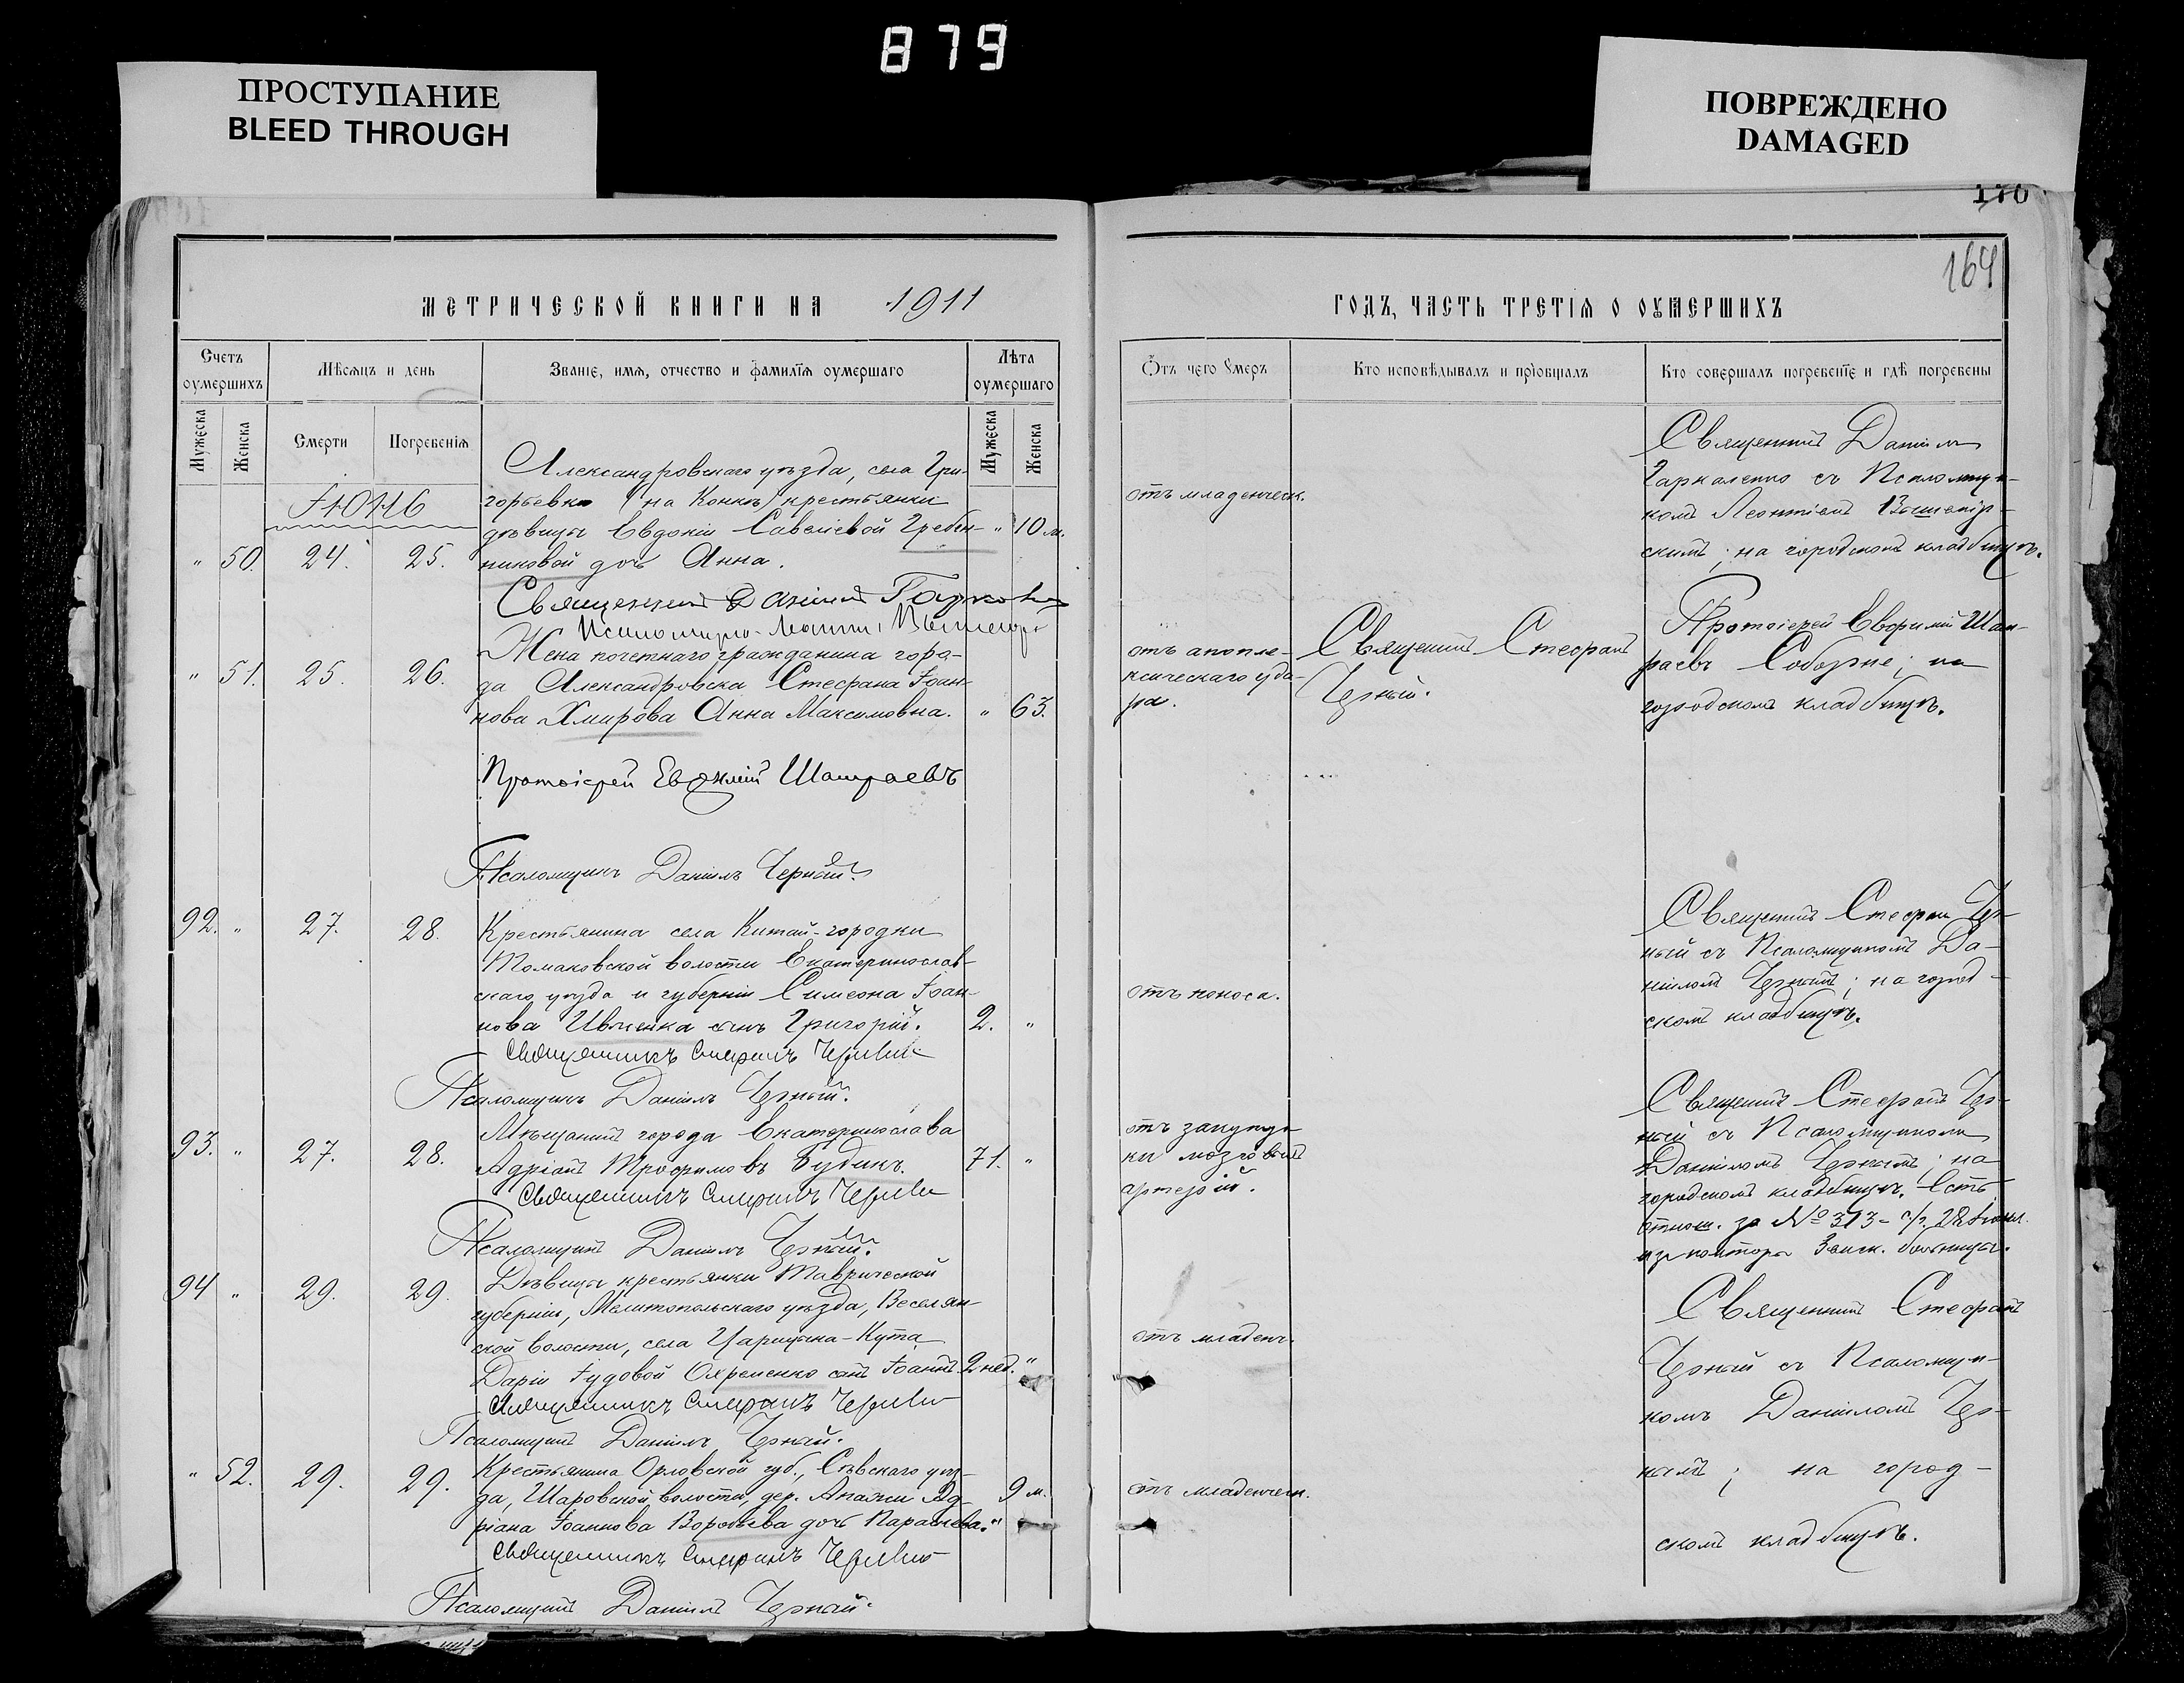 879
ПРОСТУПАНИЕ
BLEED THROUGH
ПОВРЕЖДЕНО
DAMAGED
170
164
МЕТРИЧЕСКОЙ КНИГИ НА 1911
ГОДЪ, ЧАСТЬ ТРЕТІѦ О ОУМЕРШИХЪ
Счетъ оумершихъ
Мѣсѧцъ и день
Званіе, имѧ, отчество и фамилїѧ оумершаго
Лѣта оумершаго
Мужеска
Женска
Смерти
Погребенїѧ
Мужеска
Женска
Отъ чего оумеръ
Кто исповѣдывалъ и прїобщалъ
Кто совершалъ погребенїе и гдѣ погребены
Александровскаго уѣзда, села Гри-
горьевки (на Конкѣ) крестьянки
дѣвицы Евдокіи Савеліевой Гребен- " 10 м.
" 50. 24. 25. никовой дочь Анна.
отъ младенческ.
Священникъ Даніилъ
Гаркаленко съ Псаломщи-
комъ Леонтіемъ
скимъ; на городскомъ кладбищѣ.
Священникъ Даніилъ
Жена почетнаго гражданина горо-
" 51. 25. 26. да Александровска Стефана Іоан-
нова Хмирова Анна Максимовна. " 63.
отъ апопле-
ксическаго уда-
ра.
Священникъ Стефанъ
Черный.
Протоіерей Евфимій Шам-
раевъ Соборне; на
городскомъ кладбищѣ.
Протоіерей Евфимій Шамраевъ
Псаломщикъ Даніилъ Черный.
92. " 27. 28. Крестьянина села Китай-городки
Томаковской волости Екатеринослав-
скаго уѣзда и губерніи Симеона Іоан-
нова Ивченка сынъ Григорій. 2. "
отъ поноса.
Священникъ Стефанъ Чер-
ный съ Псаломщикомъ Да-
ніиломъ Чернымъ; на город-
скомъ кладбищѣ.
Священникъ Стефанъ Черный
Псаломщикъ Даніилъ Черный.
Мѣщанинъ города Екатеринослава
93. " 27. 28. Адріанъ Трофимовъ Будикъ. 71. "
отъ закупор
ки мозговыхъ
артерій.
Священникъ Стефанъ Чер-
ный съ Псаломщикомъ
Даніиломъ Чернымъ; на
городскомъ кладбищѣ. Есть
отнош. за № 313 - с/г. 28
изъ конторы Земск. больницы.
Священникъ Стефанъ Черный
Псаломщикъ Даніилъ Черный.
94 " 29. 29. Дѣвицы крестьянки Таврической
губерніи, Мелитопольскаго уѣзда, Веселян-
ской волости, села Царицына-Кута
Даріи Іудовой Охременко сынъ Іоаннъ 2 нед. "
отъ младенч.
Священникъ Стефанъ
Черный съ Псаломщи-
комъ Даніиломъ Чер-
нымъ; на город-
скомъ кладбищѣ.
Священникъ Стефанъ Черный
Псаломщикъ Даніилъ Черный.
" 52. 29. 29. Крестьянина Орловской губ., Сѣвскаго уѣз-
да, Шаровской волости, дер. Апажи Ад- 9 м.
ріана Іоаннова Воробьева дочь Параскева. "
отъ младенческ.
Священникъ Стефанъ Черный
Псаломщикъ Даніилъ Черный.